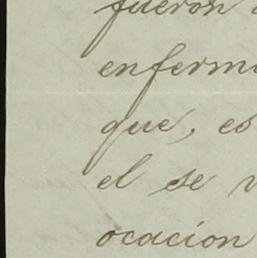 fueron
enferm
que, es
el se
ocacion